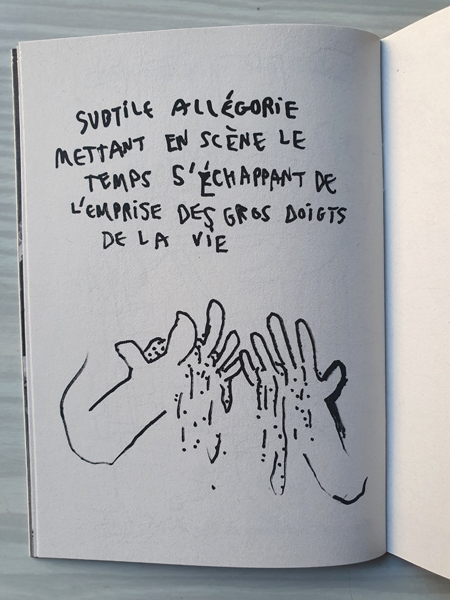 SUBTILE ALLÉGORIE
METTANT EN SCÈNE LE
TEMPS S'ÉCHAPPANT DE
L'EMPRISE DES GROS DOIGTS
DE LA VIE